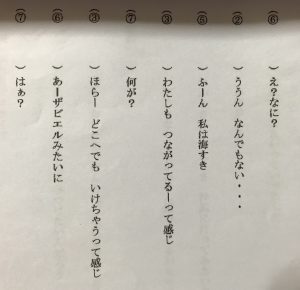 （⑥　）え？なに？
（②　）ううん　なんでもない・・・
（⑤　）ふーん　私は海すき
（③　）わたしも　つながってるーって感じ
（⑦　）何が？
（③　）ほらー　どこへでも　いけちゃうって感じ
（⑥　）あーザビエルみたいに
（⑦　）はぁ？